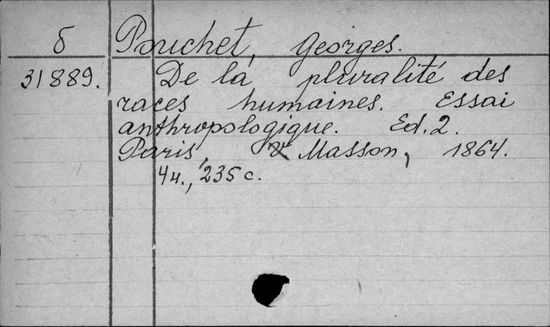 б Pouchet, Georges.
31889. De la pluralité des
races humaines. Essai
anthropologique. Ed. 2.
Paris, V Masson, 1864.
4н., 235 с.